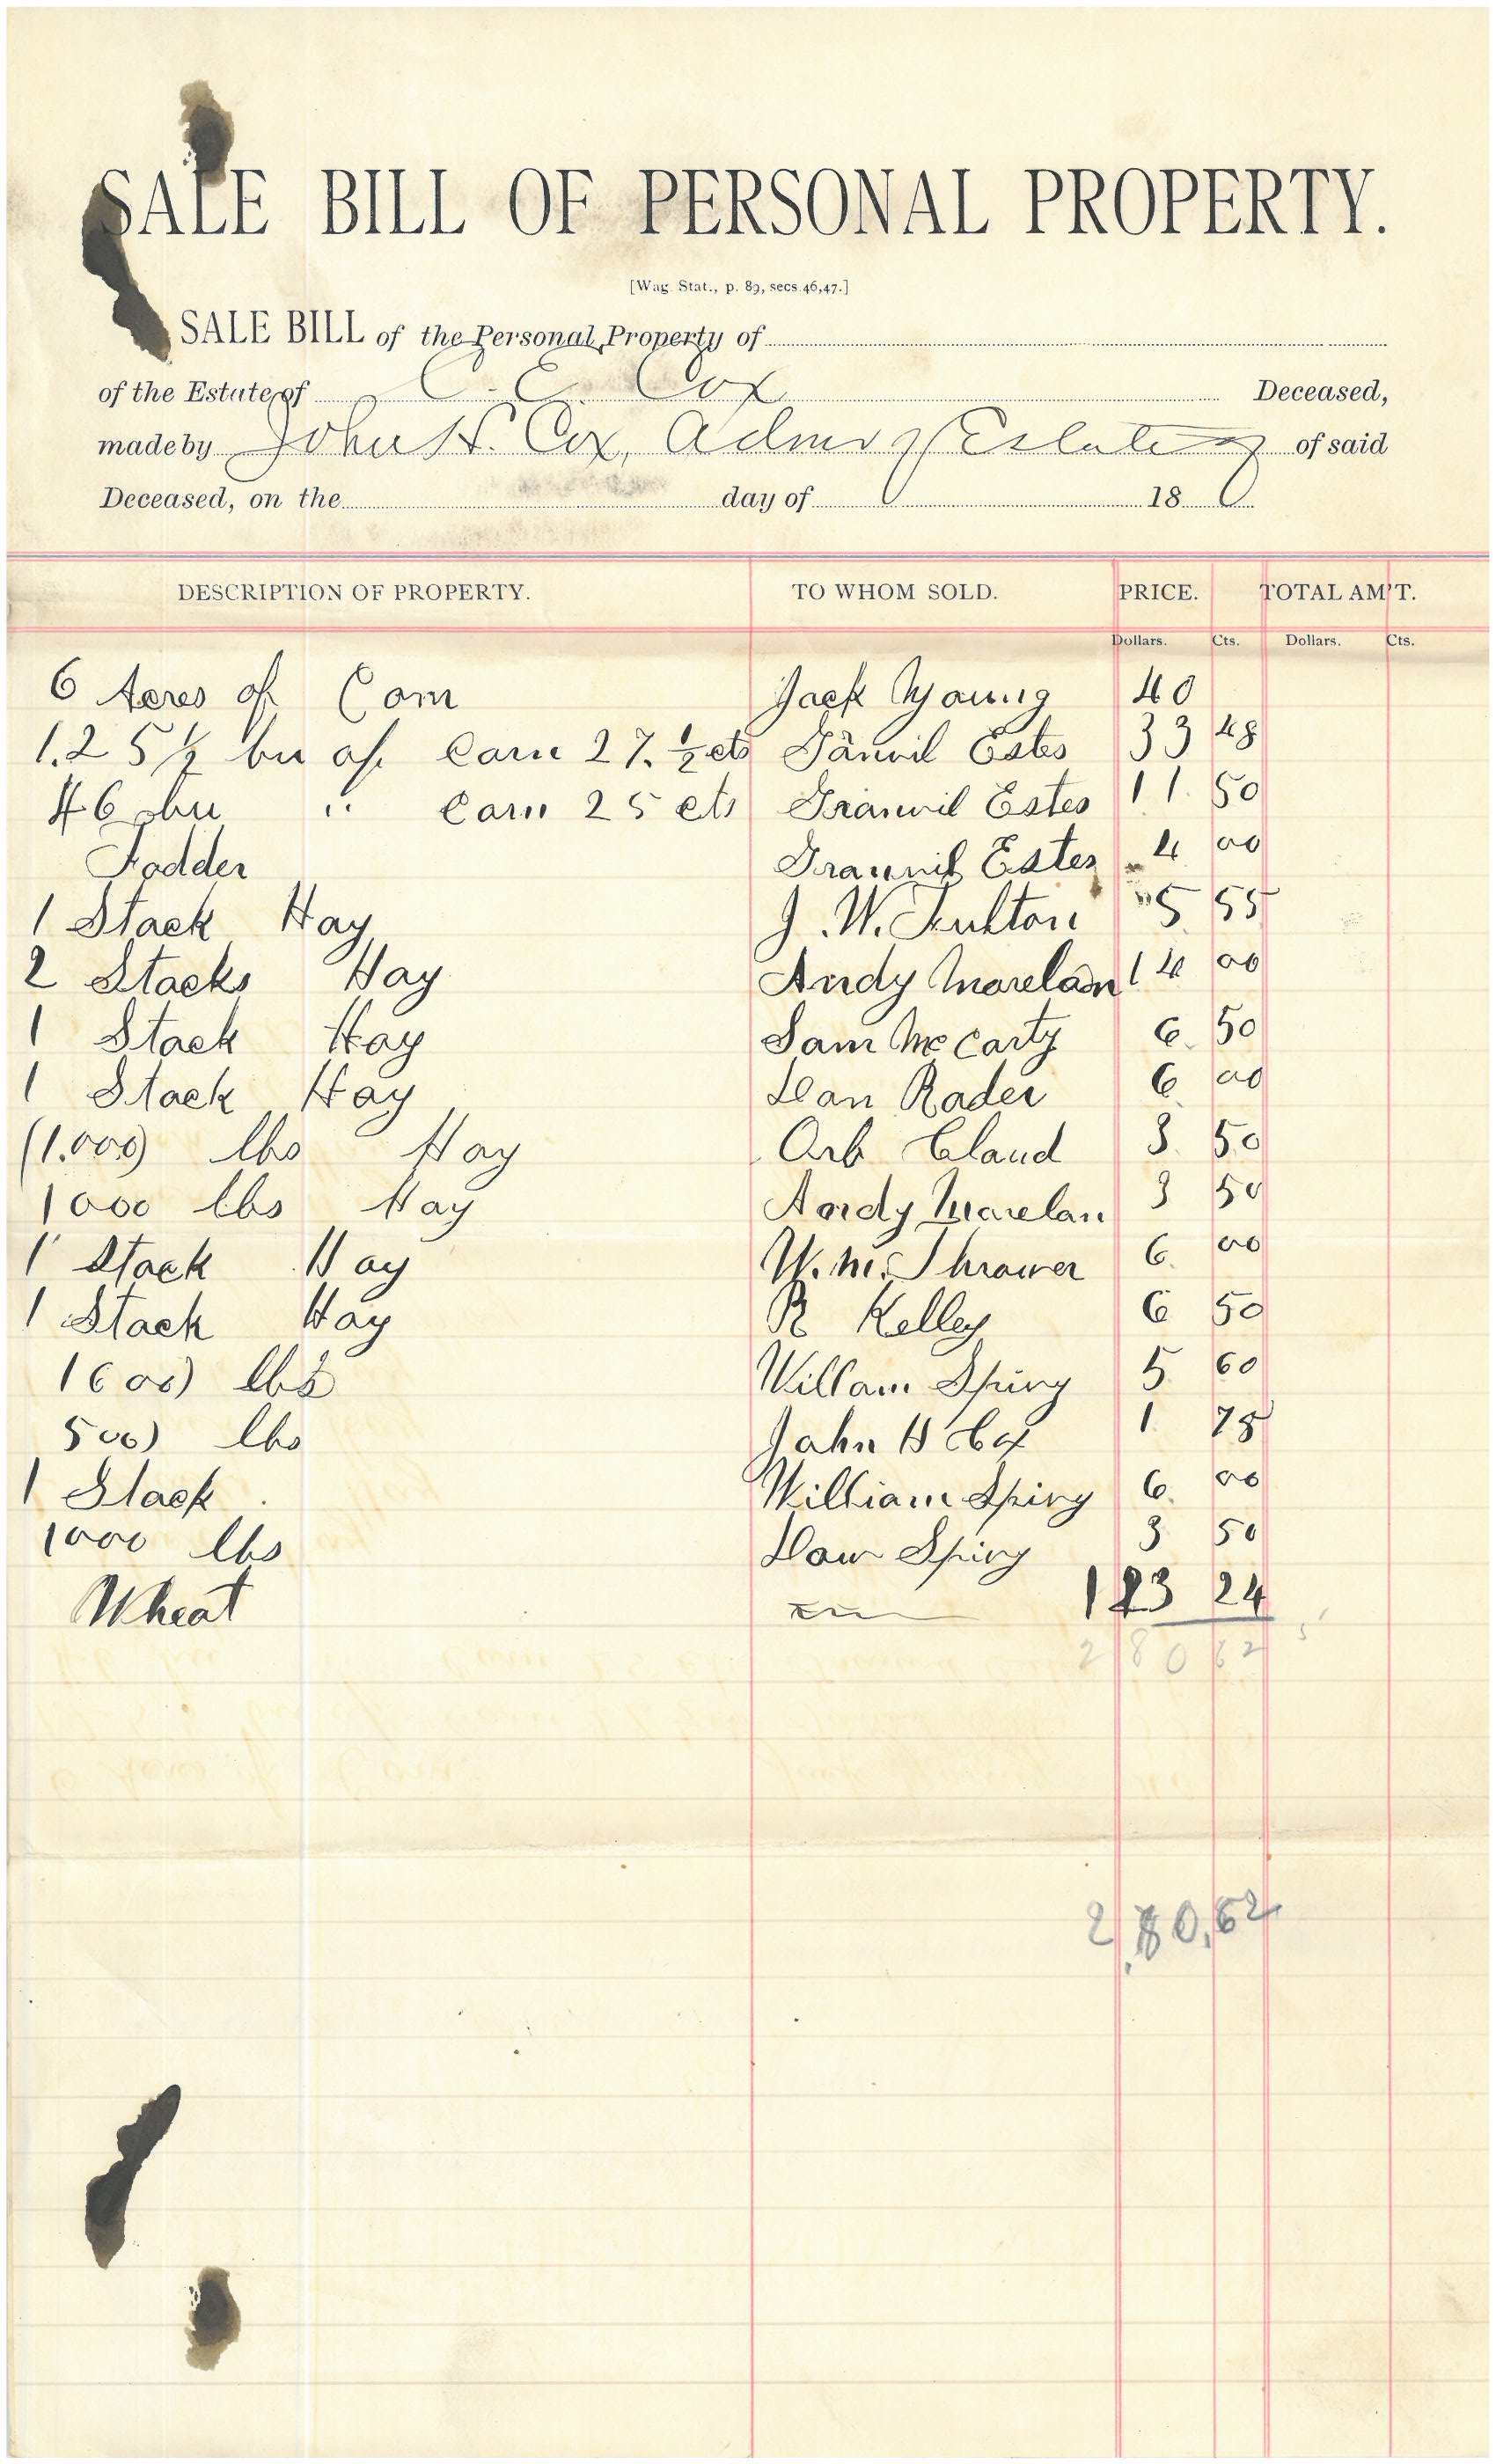 SALE BILL OF PERSONAL PROPERTY.
[Wag. Stat., p. 89, secs. 46, 47.]
SALE BILL of the Personal Property of
of the Estate of C. E. Cox Deceased,
made by John H. Cox, Admr of Estate of said
Deceased, on the day of 18
DESCRIPTION OF PROPERTY. TO WHOM SOLD. PRICE. TOTAL AM'T.
Dollars. Cts. Dollars. Cts.
6 Acres of Corn Jack Young 40
1.25 1/2 bu of Corn 27. 1/2 cts Estes 33 48
46 bu " Corn 25 cts Granvil Estes 11. 50
Fodder Granvil Estes 4 00
1 Stack Hay J. W. Fulton 5 55
2 Stacks Hay Andy Morelan 14 00
1 Stack Hay Sam McCarty 6. 50
1 Stack Hay Dan Rader 6 00
(1.000) lbs Hay Orb Claud 3. 50
1000 lbs Hay Andy Morelan 3 50
1 Stack Hay W. M. Thrower 6. 00
1 Stack Hay R Kelley 6 50
1600) lbs Willam Spivy 5 60
500) lbs John H Cox 1. 75
1 Stack William Spivy 6. 00
1000 lbs Daw Spivy 3 50
Wheat 123 24
280 62
280.62